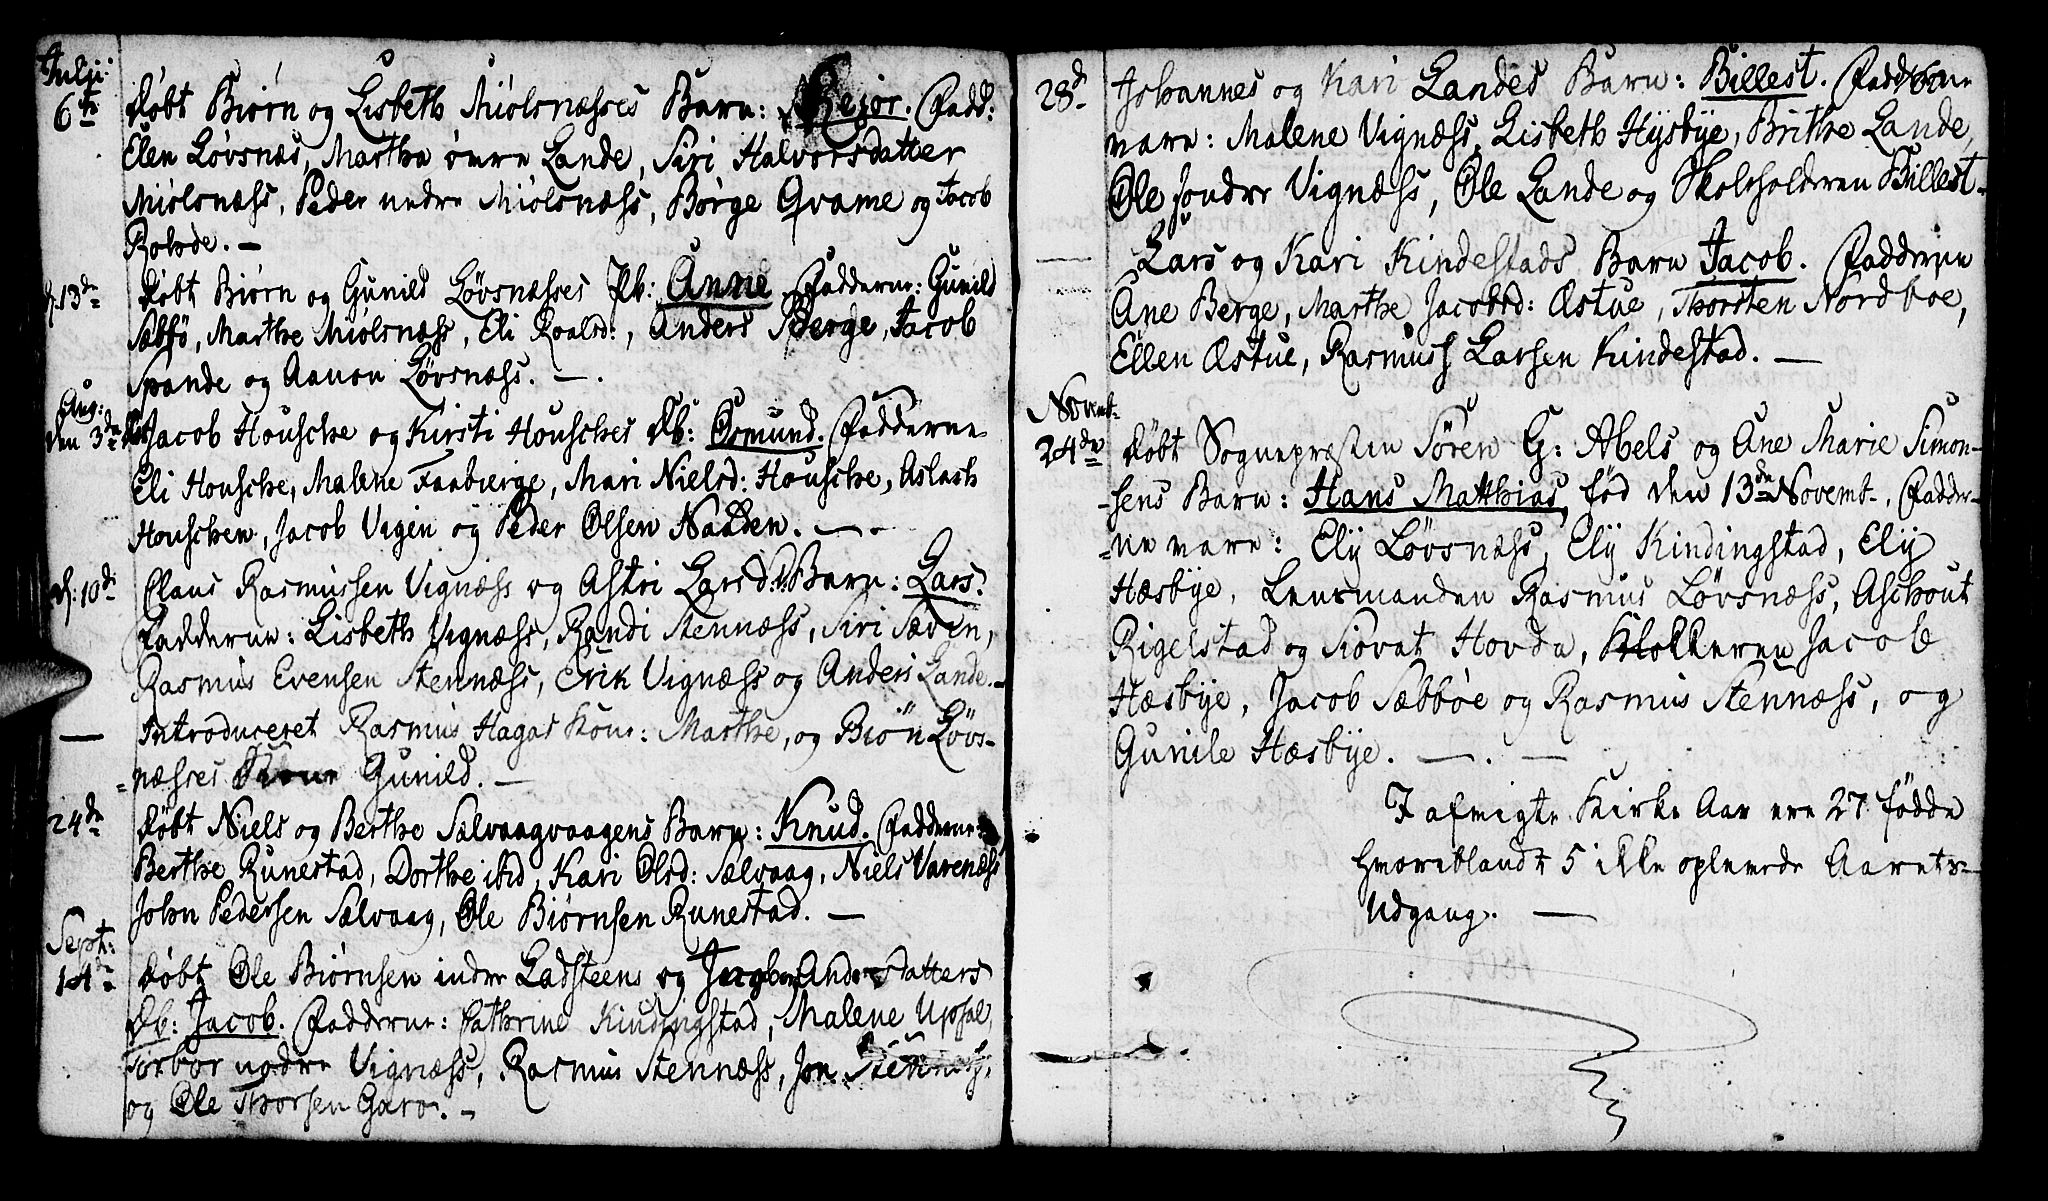 Julii
6te døbt Biørn og Lisbeth Miølsnæsses Barn: Rejor. Fadd:
Elen Løvsnæs, Marthe øvre Lande, Siri Halvorsdatter
Miølsnæss, Peder nedre Miølsnæss, Børge Qvame og Jacob
Rohde. —
d. 13de døbt Biørn og Gunild Løvsnæsses Pb: Anne Fadderne: Gunild
Sæbø, Marthe Miølsnæss, Eli Roalsd:, Anders Berge, Jacob
Spande og Aanon Løvsnæss. —.
Aug:
den 3de Jacob Houschе og Kirsti Housches Db: Osmund. Fadderne
Eli Housche, Malene Faaberge, Mari Nielsd: Housche, Aslach
Houschen, Jacob Vigen og Peder Olsen Nadden. —.
d: 10de Claus Rasmussen Vignæss og Astri Larsd: Barn: Lars.
Fadderne: Lisbeth Vignæss, Randi Stennæss, Siri Sæven,
Rasmus Evensen Stennæss, Erik Vignæss og Anders Lande. —
— Introduceret Rasmus Hagas Kone: Marthe, og Biøn Løvs-
næsses Kone Gunild. —
24de døbt Niels og Berthe Sælvaagvaagens Barn: Knud. Fadderne:
Berthe Runestad, Dorthe ibid, Kari Olsd: Sælvaag, Niels Varenæss
John Pedersen Sælvaag, Ole Biørnsen Runestad. —
Sept:
14de døbt Ole Biørnsen indre Ladsteens og Andersdatters
Db: Jacob. Fadderne: Cathrine Kindingstad, Malene Upsal,
Torbor nedre Vignæss, Rasmus Stennæss, Jon Stennæss,
og Ole Thorsen Garo. —
28de Johannes og Kari Landes Barn: Billest. Fadderne
vare: Malene Vignæss, Lisbeth Hysbye, Brithe Lande,
Ole søndre Vignæss, Ole Lande og Skoleholderen Billest.
— Lars og Kari Kindestads Barn Jacob. Fadderne
Ane Berge, Marthe Jacobsd: Østue, Thorsten Nordboe,
Ellen Østue, Rasmus Larsen Kindestad. —
Novemt.
24de døbt Sognepræsten Søren G: Abels og Ane Marie Simon-
sens Barn: Hans Matthias, fød den 13de Novemt., Fadder-
ne vare: Ely Løvsnæss, Ely Kindingstad, Ely
Hæsbye, Lensmanden Rasmus Løvsnæss, Aschout
Rigelstad og Siovat Hovda, Klokkeren Jacob
Hæsbye, Jacob Sæbbøe og Rasmus Stennæss, og
Gunile Hæsbye. —. —
I afvigte Kirke Aar ere 27 fødde
hvoriblandt 5 ikke oplevede Aarets
Udgang. —